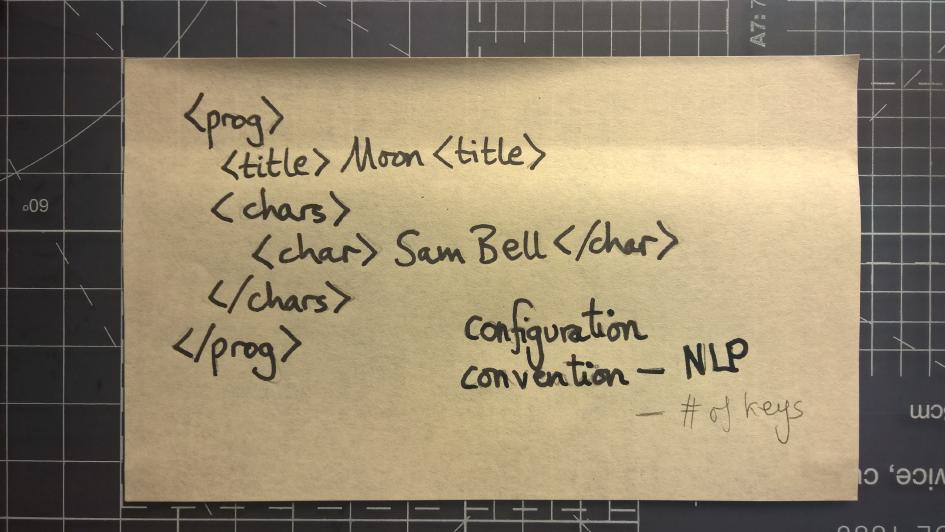 <prog>
<title> Moon <title>
<chars>
<char> Sam Bell </char>
</chars>
</prog>
configuration
convention — NLP
— # of keys
A7:7
60°
cm
vice, cu